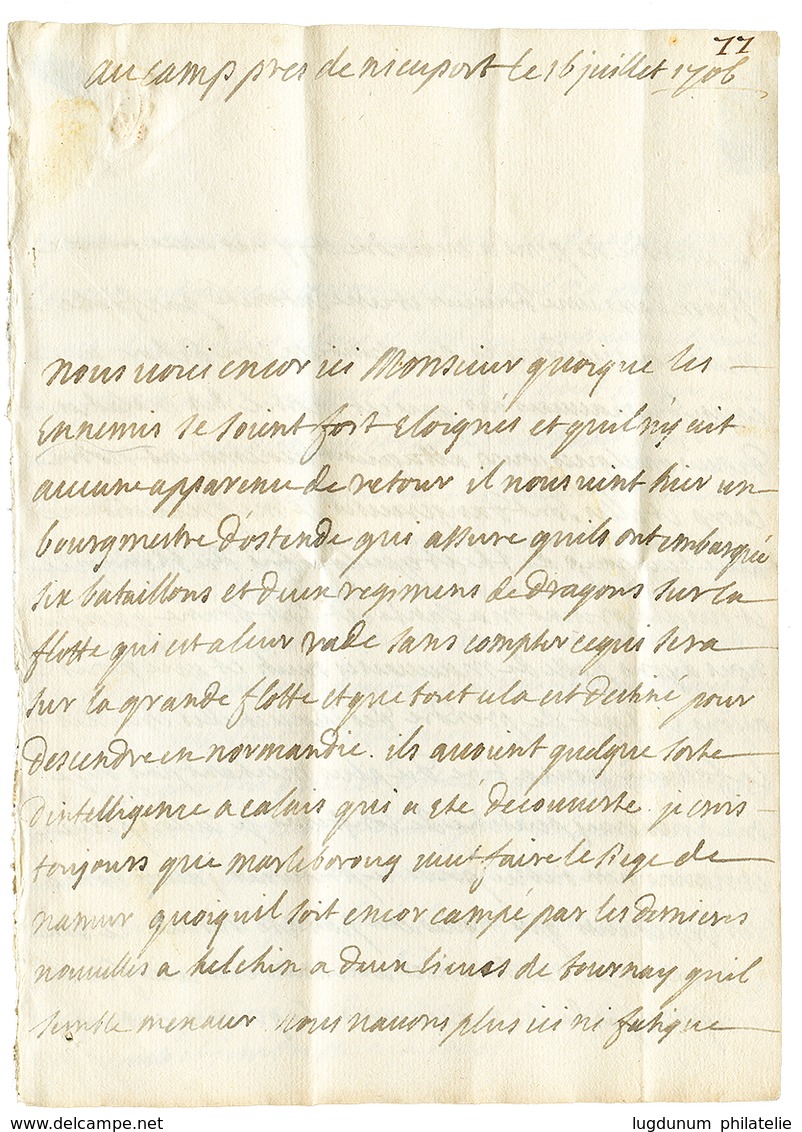 77
au camp pres de nieuport le 16 juillet 1706
nous voici encor ici Monsieur quoique les
Ennemis se soient fort Eloignes et quil n'y ait
aucune apparence de retour il nous vint hier un
bourgmestre d'ostende qui assure quils ont embarqué
six bataillons et deux regimens de dragons sur la
flotte qui est a leur rade sans compter ce qui sera
sur la grande flotte et que tout cela est destiné pour
descendre en normandie. ils avoient quelque sorte
d'intelligence a calais qui a Eté decouverte. je crois
toujours que marleboroug veut faire le siege de
namur quoiquil soit encor campé par les dernieres
nouvelles a helchin a deux lieues de tournay quil
semble menacer. nous navons plus ici ni fatigue
delcampe.net
lugdunum philatelie